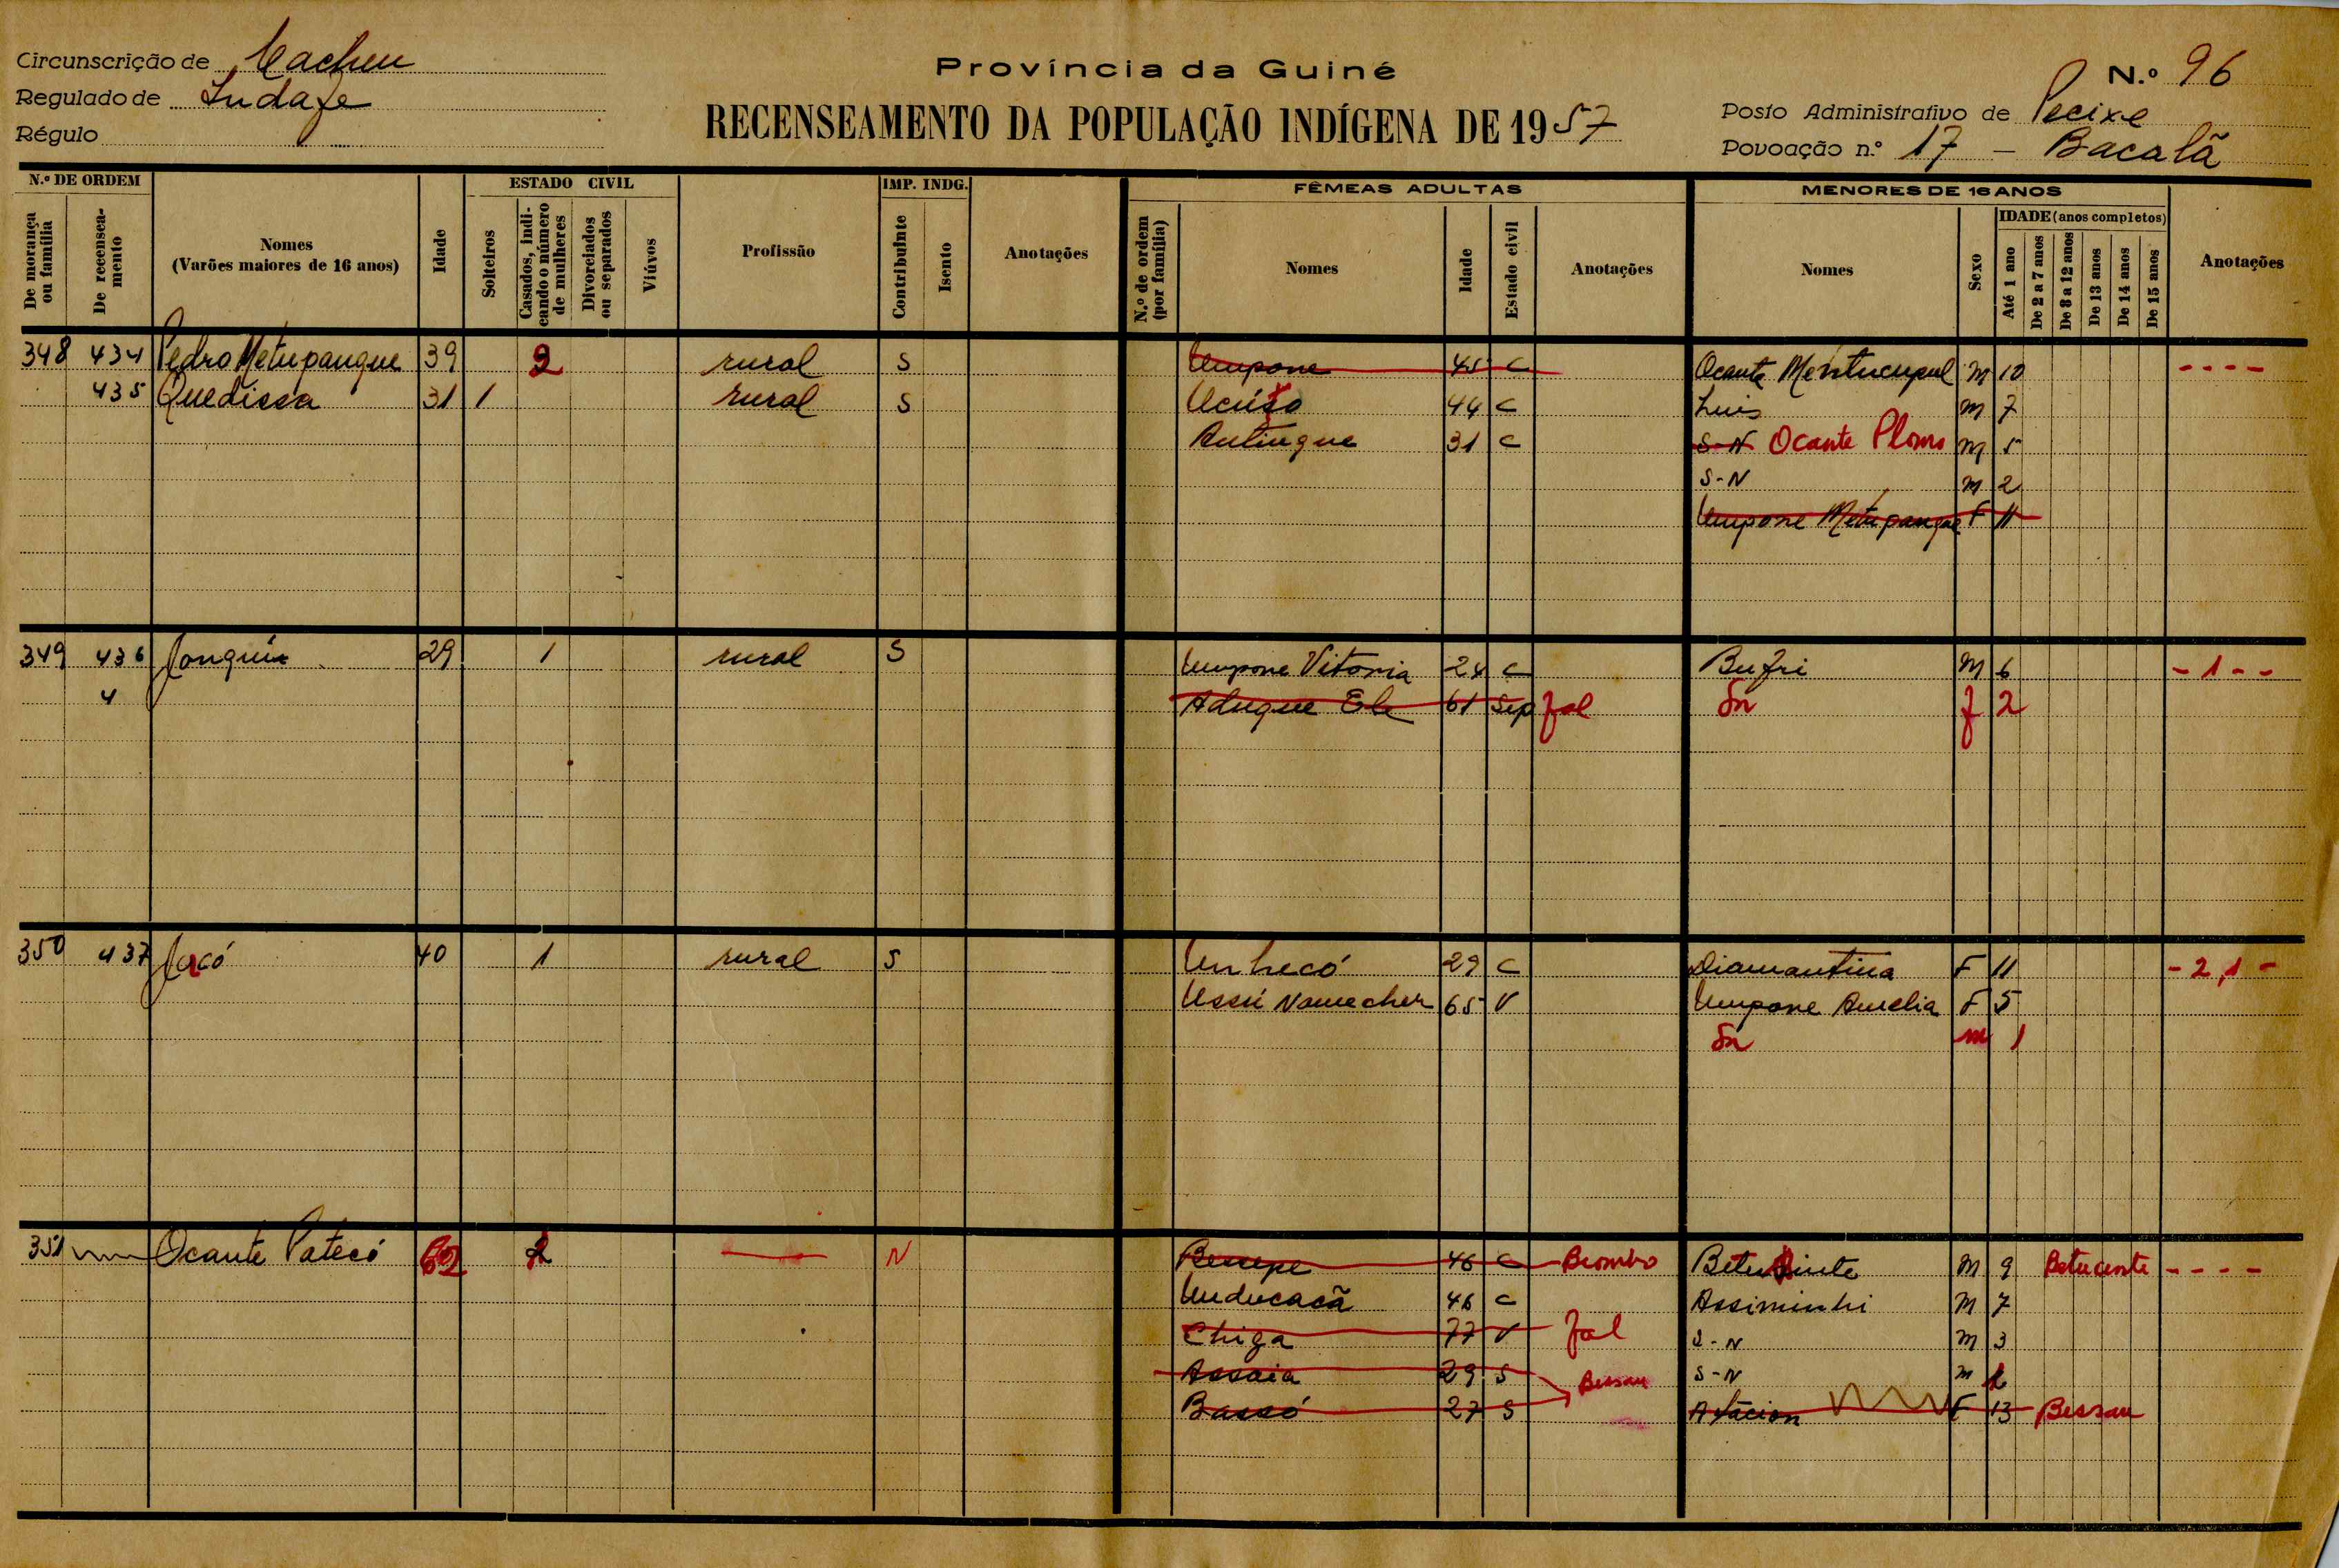 Circunscrição de Cacheu
Regulado de Indafe
Régulo
Província da Guiné
RECENSEAMENTO DA POPULAÇÃO INDÍGENA DE 1957
N.º 96
Posto Administrativo de Pecixe
Povoação n.º 17 - Bacalã
N.º DE ORDEM
De morança ou família
De recenseamento
Nomes
(Varões maiores de 16 anos)
Idade
ESTADO CIVIL
Solteiros
Casados, indicando o número de mulheres
Divorciados ou separados
Viúvos
Profissão
IMP. INDG.
Contribuinte
Isento
Anotações
FÊMEAS ADULTAS
N.º de ordem (por família)
Nomes
Idade
Estado civil
Anotações
MENORES DE 16 ANOS
Nomes
Sexo
IDADE (anos completos)
Até 1 ano
De 2 a 7 anos
De 8 a 12 anos
De 13 anos
De 14 anos
De 15 anos
Anotações
348 434 Pedro Metupangue 39 2 rural S Umpone 45 C Ocante Mentucupul M 10 - - - -
435 Quedissa 31 1 rural S 44 C Luis M 7
Antingue 31 C S-N Ocante Ploms M 5
S-N M 2
Umpone Metupangue F 11
349 436 Jonquin 29 1 rural S Umpone Vitoria 24 C Bufri M 6 - 1 - -
4 Adugue Ele 61 Sep fal Sn f 2
350 437 Jacó 40 1 rural S Unhecó 29 C Diamantina F 11 - 2, 1 -
Ussú Namecher 65 V Umpone Aurelia F 5
Sn m 1
351 Ocante Patecó 62 2 N 46 C Biombo M 9 Betucente - - - -
Unducacã 46 C Assiminhi M 7
Chiga 77 V fal S-N M 3
Assaia 29 S Bissau S-N M
Bassó 27 S F 13 Bissau